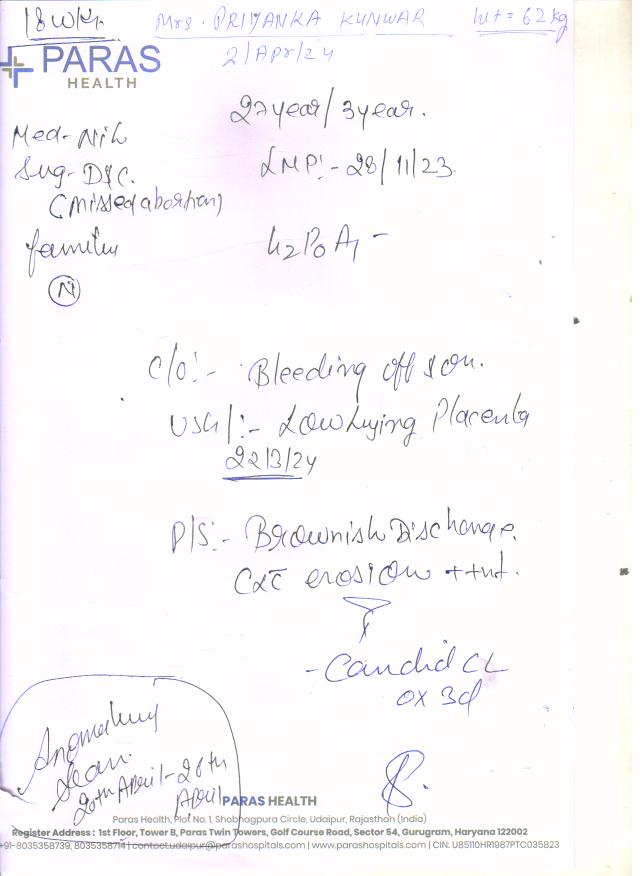 18 wk.
Mrs. PRIYANKA KUNWAR
wt = 62 kg
2/Apr/24
PARAS
HEALTH
27 year / 3 year.
Med - Nil
Sug - D&C.
(missed abortion)
LMP:- 28/11/23.
family
N
G2P0A1
C/O:- Bleeding off & on.
USG/:- Low Lying Placenta
22/3/24
P/S:- Brownish Discharge.
erosion ++nt.
- Candid CL
OX 3d
Anomaly
Scan.
20th April - 26th
April
PARAS HEALTH
Paras Health, Plot No. 1, Shobhagpura Circle, Udaipur, Rajasthan (India)
Register Address : 1st Floor, Tower B, Paras Twin Towers, Golf Course Road, Sector 54, Gurugram, Haryana 122002
+91-8035358739, 8035358714 | contact.udaipur@parashospitals.com | www.parashospitals.com | CIN: U85110HR1987PTC035823